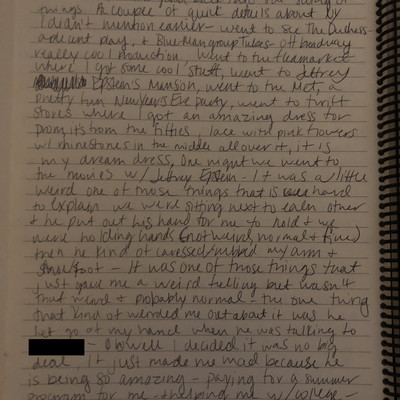 things. A couple of quick details about NY
I didn't mention earlier - went to see The Duchess
a decent play, & Blue Man group Tubes - off broadway
really cool production, went to the fleamarket
where I got some cool stuff, went to Jeffrey
Epstein's Mansion, went to the Met, a
pretty fun New Year's Eve party, went to thrift
stores where I got an amazing dress for
prom, it's from the fifties, lace with pink flowers
w/ rhinestones in the middle all over it, it is
my dream dress, One night we went to
the movies w/ Jeffrey Epstein - It was a little
weird one of those things that is hard
to explain we were sitting next to each other
& he put out his hand for me to hold & we
were holding hands (not weird, normal & fine)
then he kind of caressed/rubbed my arm &
foot - It was one of those things that
just gave me a weird feeling but wasn't
that weird & probably normal - the one thing
that kind of weirded me out about it was he
let go of my hand when he was talking to
- Oh well I decided it was no big
deal, it just made me mad because he
is being so amazing - paying for a summer
program for me & helping me w/ college -